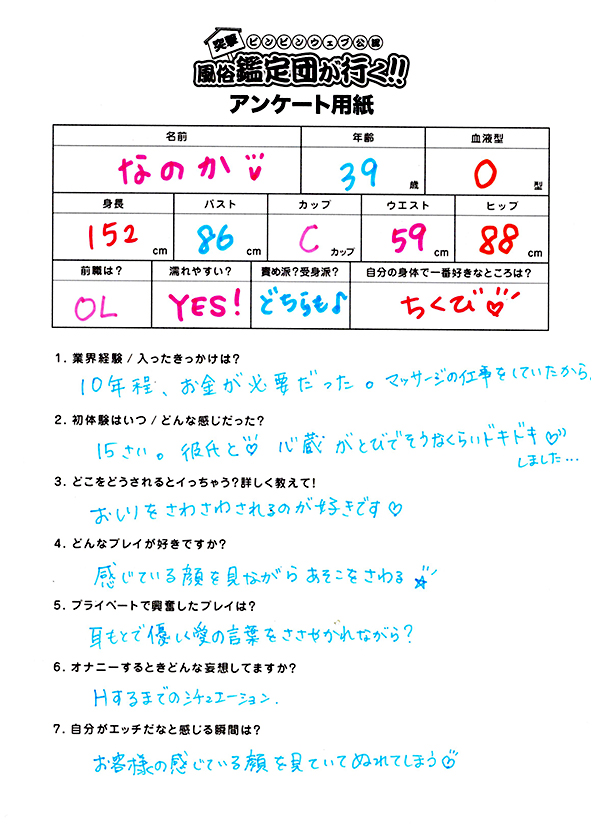 突撃
ビンビンウェブ公認
風俗鑑定団が行く!!
アンケート用紙
名前 年齢 血液型
なのか♡ 39歳 O型
身長 バスト カップ ウエスト ヒップ
152cm 86cm Cカップ 59cm 88cm
前職は? 濡れやすい? 責め派?受身派? 自分の身体で一番好きなところは?
OL YES! どちらも♪ ちくび♡
1. 業界経験/入ったきっかけは?
10年程、お金が必要だった。マッサージの仕事をしていたから。
2. 初体験はいつ/どんな感じだった?
3. どこをどうされるとイっちゃう?詳しく教えて!
おしりをさわさわされるのが好きです♡
4. どんなプレイが好きですか?
感じている顔を見ながらあそこをさわる☆
5. プライベートで興奮したプレイは?
耳もとで優しく愛の言葉をささやかれながら?
6. オナニーするときどんな妄想してますか?
Hするまでのシチュエーション.
7. 自分がエッチだなと感じる瞬間は?
お客様の感じている顔を見ていてぬれてしまう♡